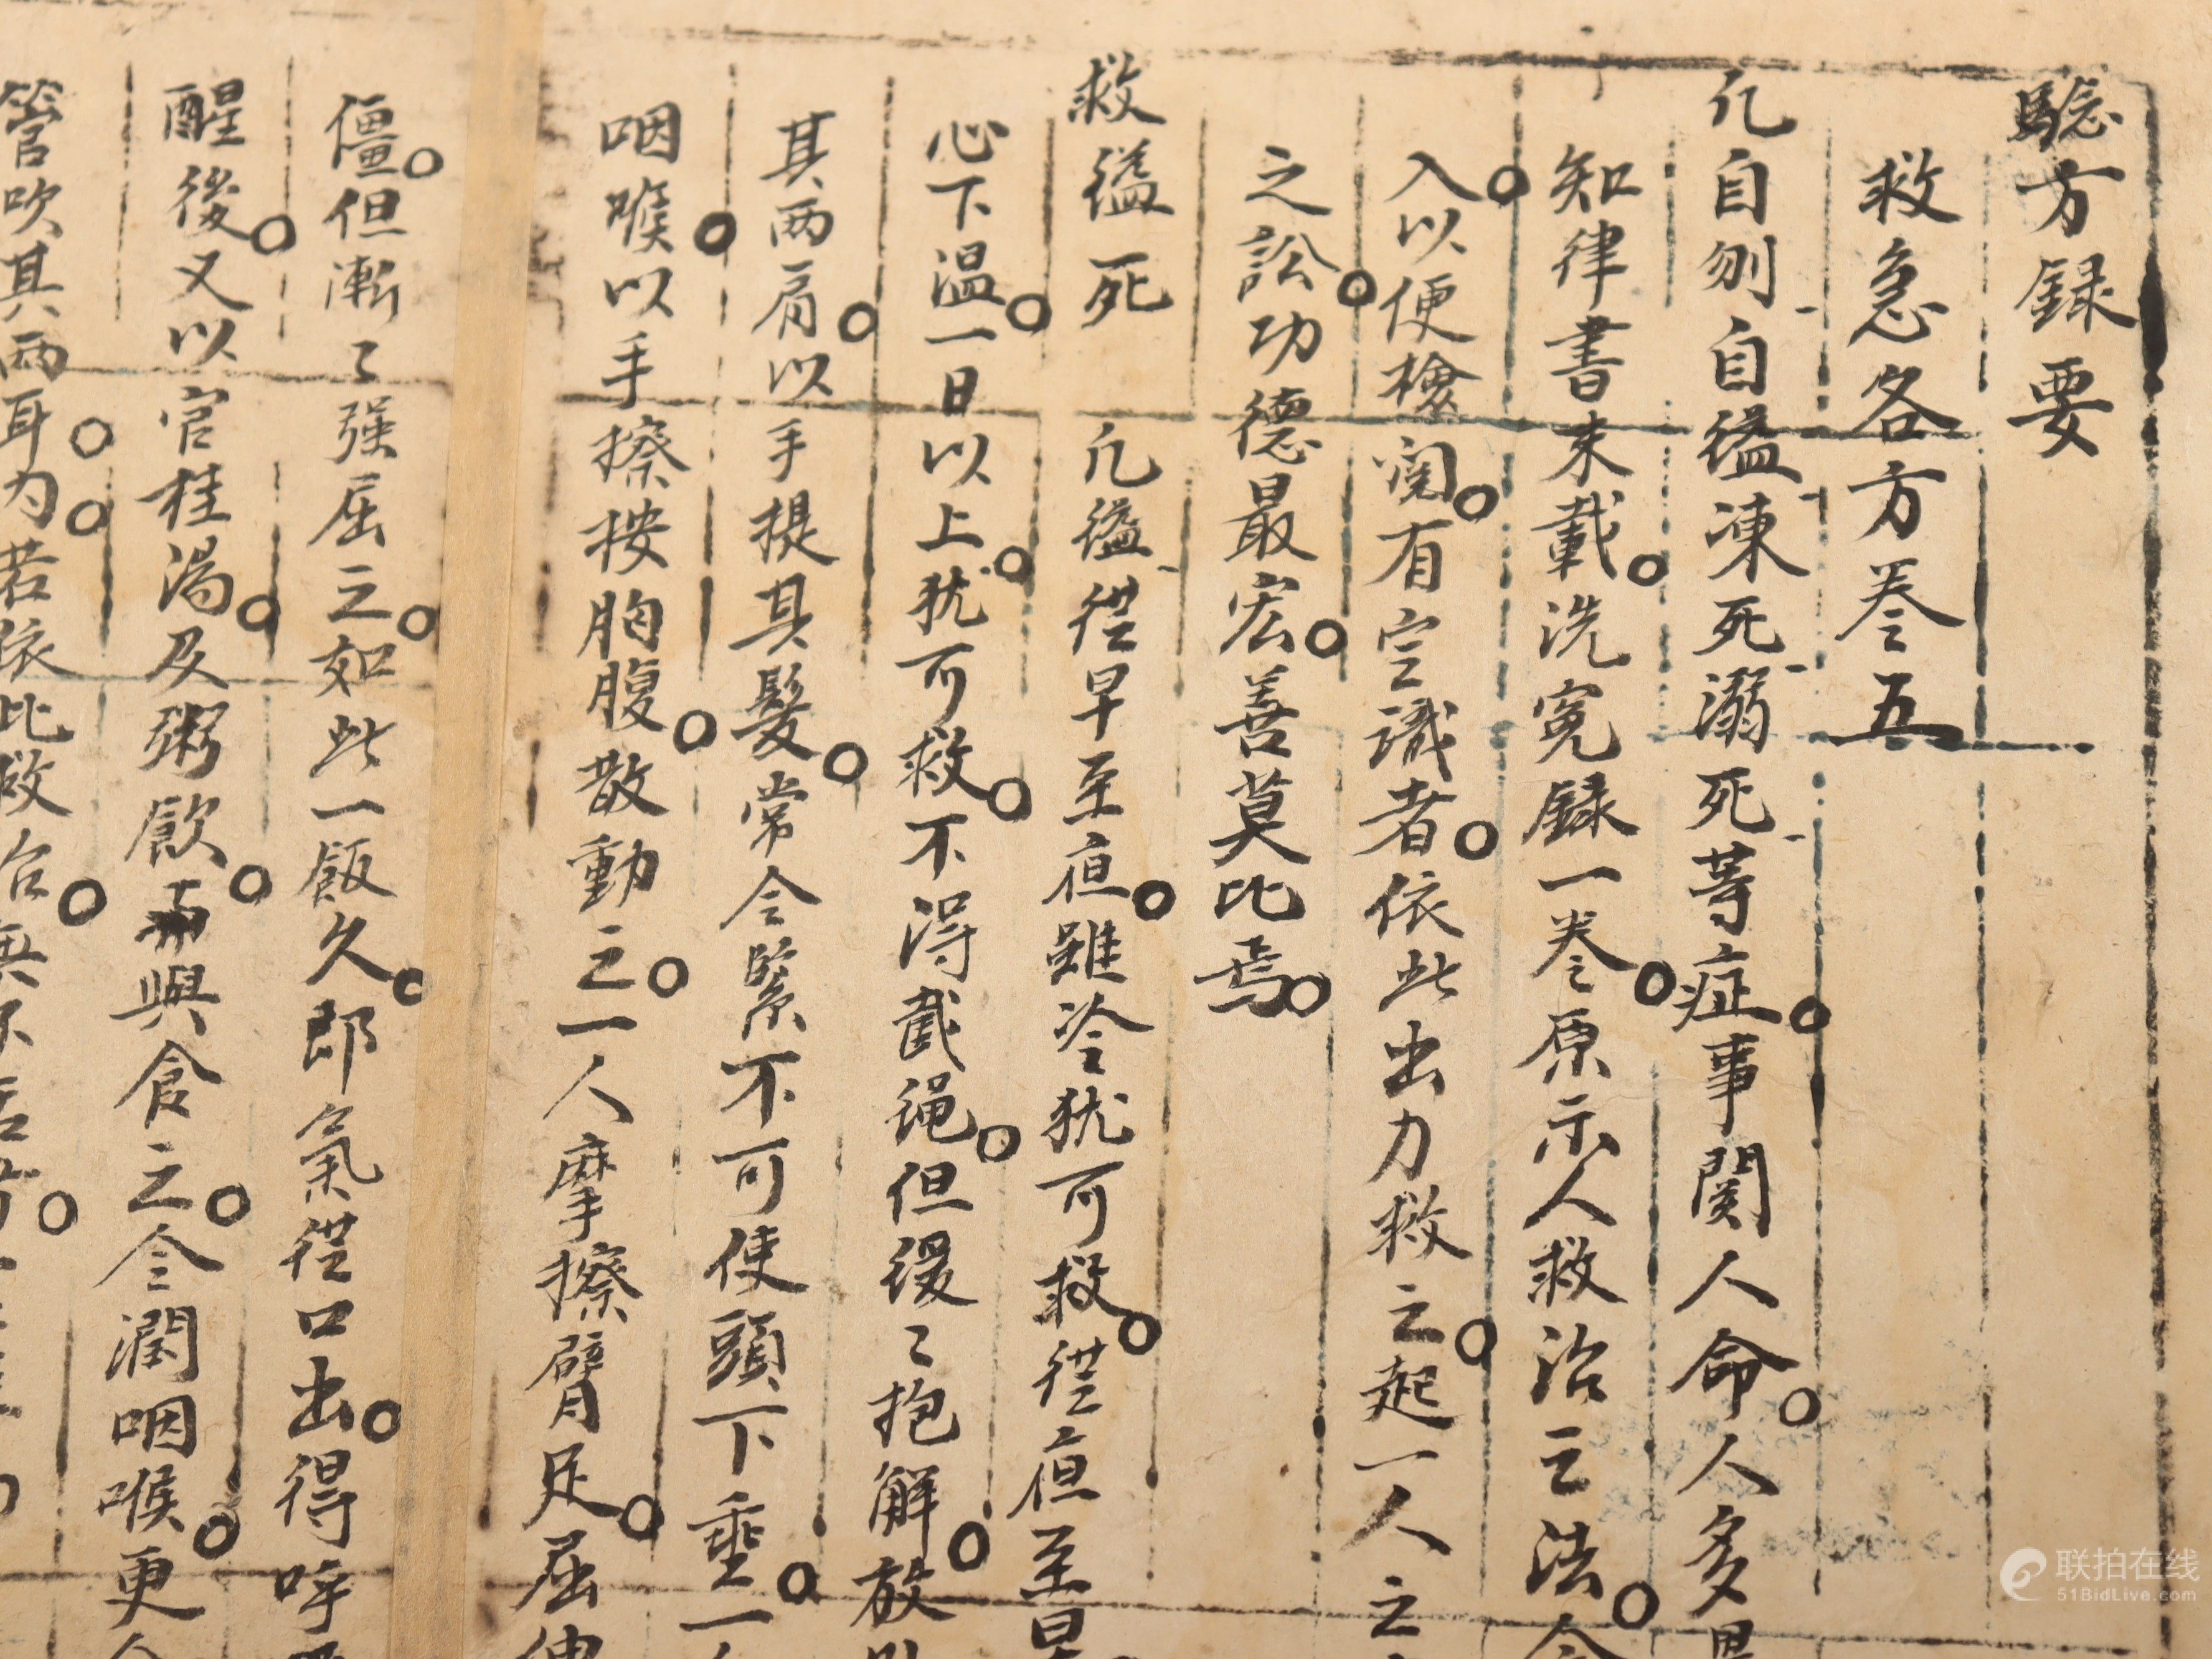 驗方録要
救急各方卷五
凢自刎自縊凍死溺死等症事関人命人多
知律書末載洗冤録一卷原示人救治之法今
入以便檢閲有空識者依此出力救之起一人之
之訟功德最宏善莫比焉
救縊死 凢縊従早至夜雖冷犹可救従夜至早
心下温一日以上犹可救不得截绳但缓〻抱解放
其两肩以手提其髮常令緊不可使頭下垂一
咽喉以手擦按胸腹散動之一人摩擦臂足屈伸
僵但漸〻强屈之如此一飯久即氣従口出得呼
醒後又以官桂湯及粥飲与食之令潤咽喉更
管吹其两耳为若依比救治無不
联拍在线
51BidLive.com